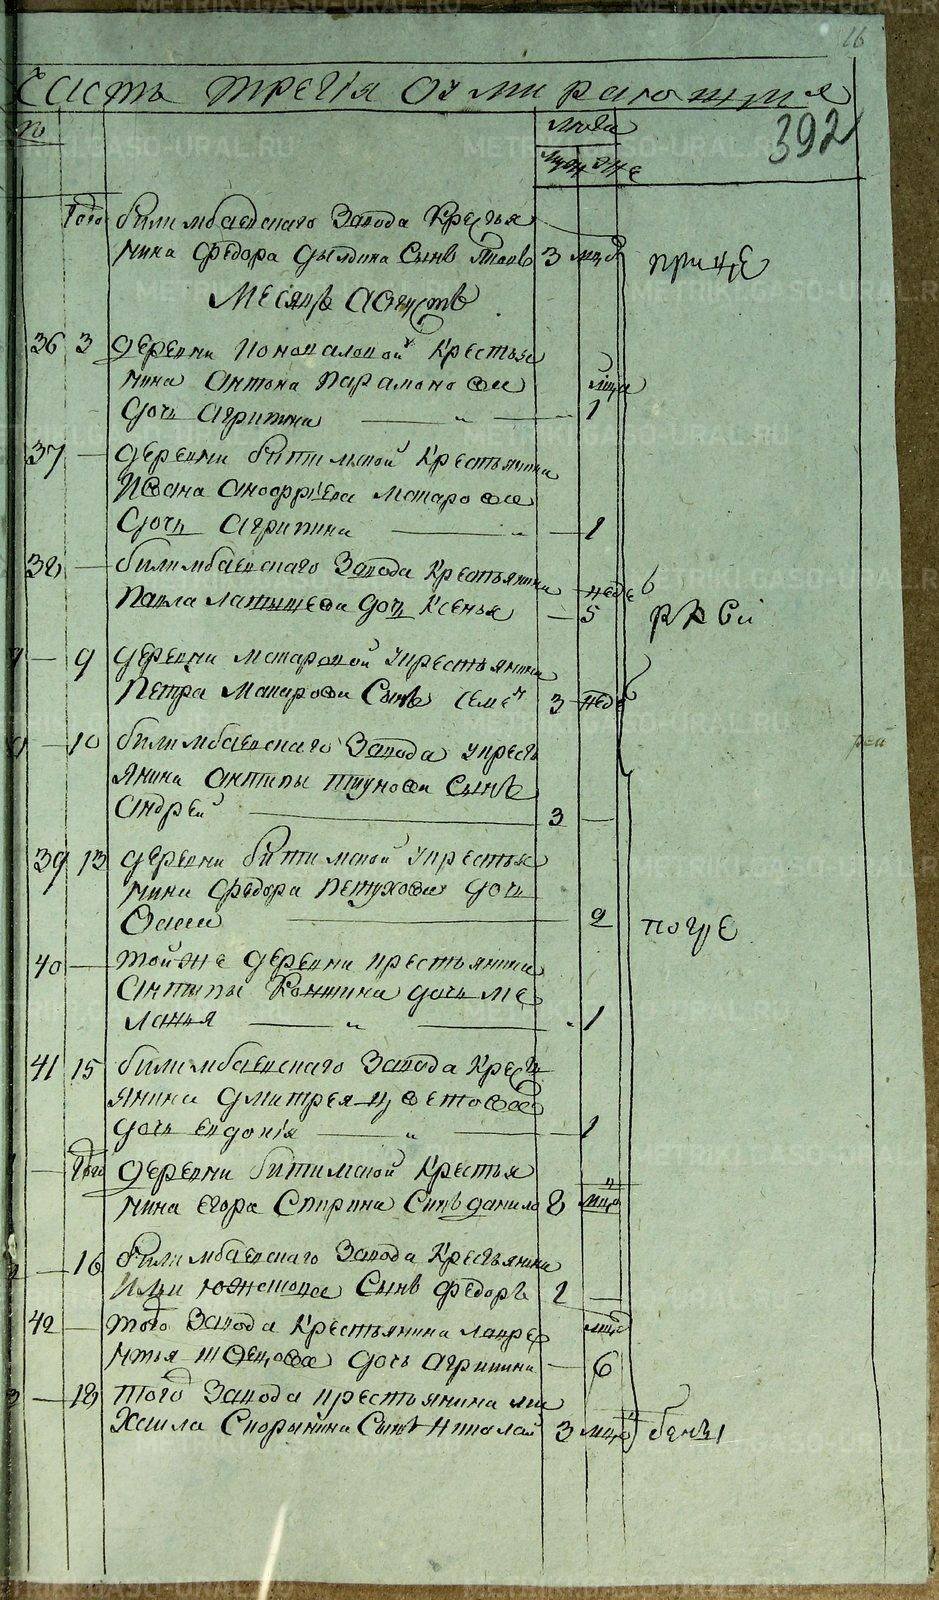 16
Часть третія о умирающихъ
392
Лѣта
муж же
Того билимбаевскаго Завода Крестья
нина Федора Сын 3 мца
прище
Месяцъ Августъ
36 3 деревни Коновалової Крестья
нина Антона Парамонова мца
дочь Агрипина — „ — 1
37 — деревни битимской Крестьянина
Ивана Анофріева Макарова
дочь Агрипина — „ — 1
38 — билимбаевскаго Завода Крестьянина неде
Павла Латышева дочь Ксенья — 5
— 9 деревни Макаровой крестьянина
Петра Макарова Сынъ Семен 3 неде
— 10 билимбаевскаго Завода кресть
янина Антипы Сынъ
Андреи — 3 —
39 13 деревни битимской крестья
нина Федора Петухова дочь
— 2
40 — тойже деревни крестьянина
Антипы дочь Ме
ланья — „ — 1
41 15 билимбаевскаго Завода Крест
янина Дмитрея Цветова
дочь Евдокія — „ — 1
— Того деревни битимской Крестья
нина Егора Спирина Сынъ данило 8 мца
— 16 билимбаевскаго Завода Крестьянина
Ильи Сынъ Федоръ 2 —
42 — того Завода Крестьянина Лавре мца
нтья Швецова дочь Агрипина — 6
— 18 того Завода крестьянина ми
хаила Скорынина Сынъ Николай 3 мца